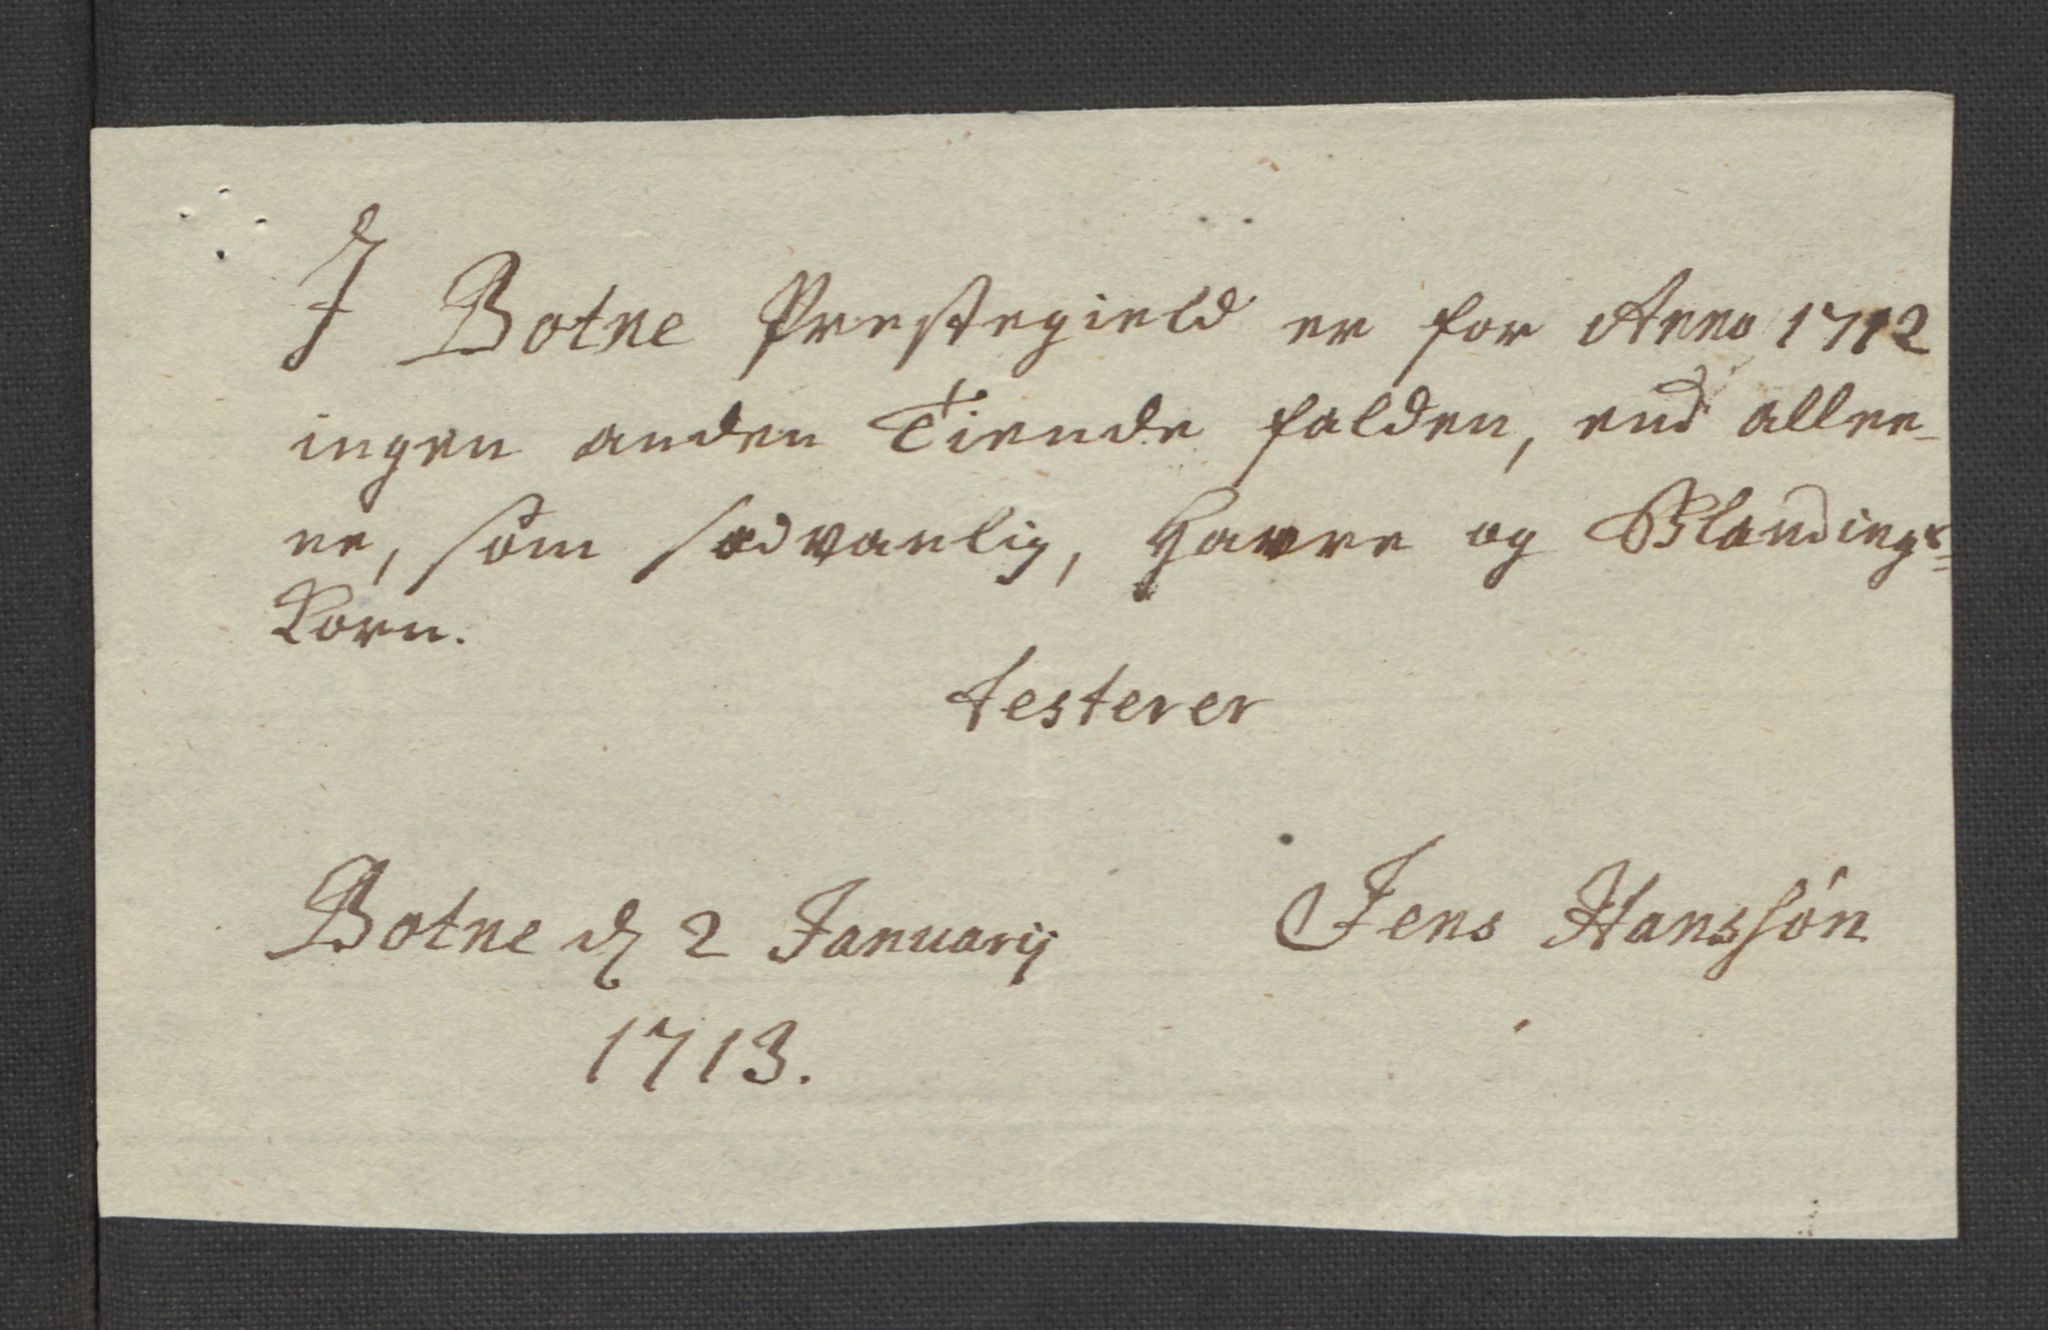 I Botne Prestegield er for Anno 1712
ingen anden Tiende falden, end allee-
ne, som sædvanlig, Havre og Blandings-
Korn.
testerer
Botne d 2 Januarij
1713.
Jens Hanssøn